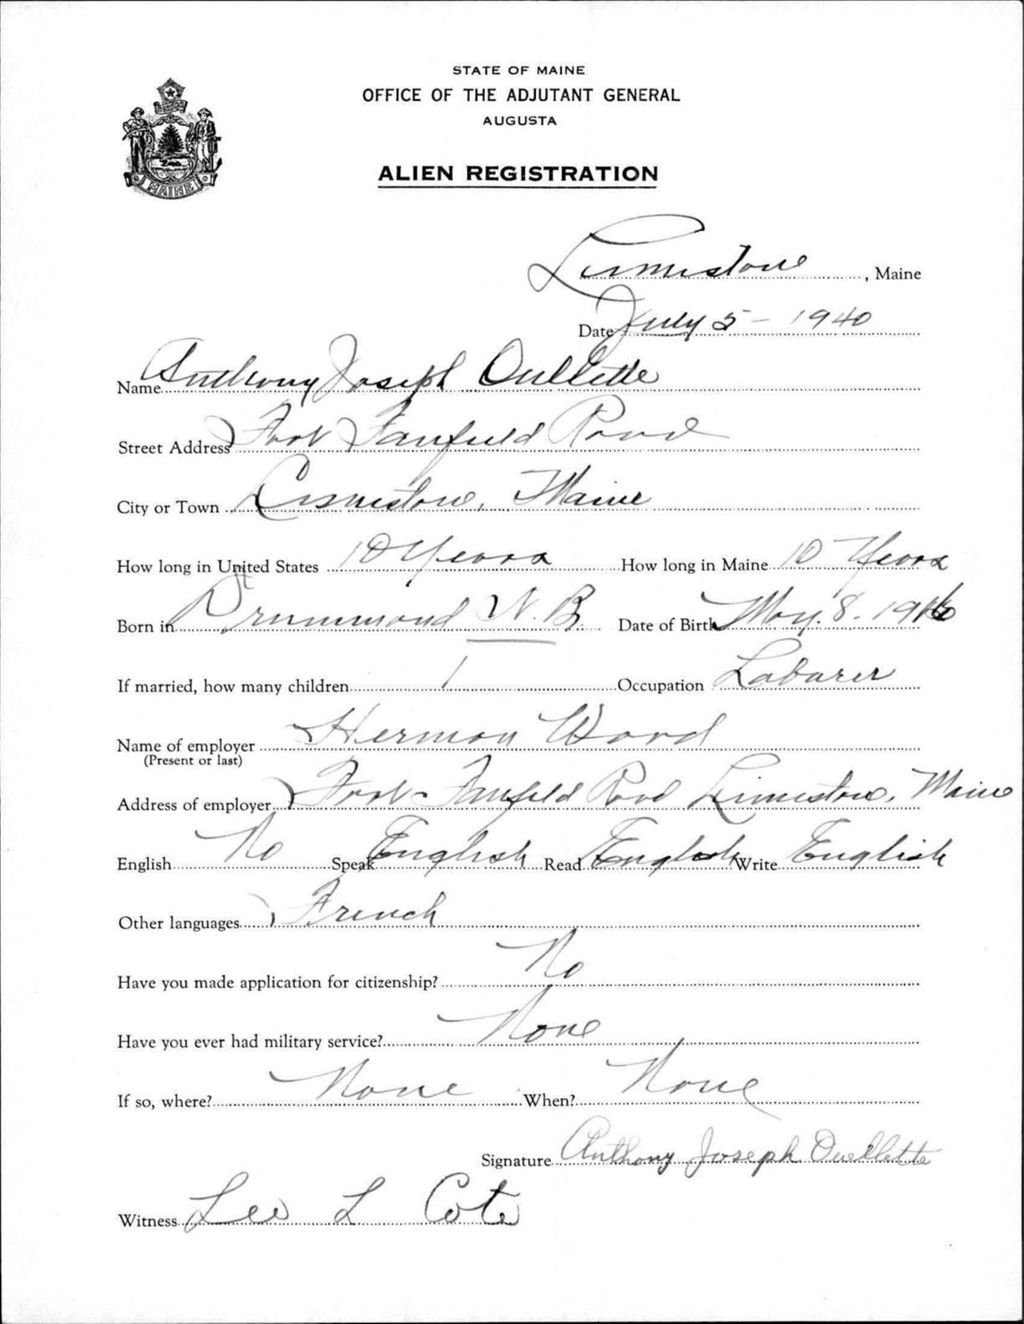 STATE OF MAINE
OFFICE OF THE ADJUTANT GENERAL
AUGUSTA
ALIEN REGISTRATION
MAINE
Limestone, Maine
Date July 5 - 1940
Name Anthony Joseph Oullette
Street Address Fort Fairfield Road
City or Town Limestone, Maine
How long in United States 10 Years How long in Maine 10 Years
Born in Drummond N.B. Date of Birth May. 8. 1916
If married, how many children 1 Occupation Laborer
Name of employer Hermon Wood
(Present or last)
Address of employer Fort Fairfield Road Limestone, Maine
English No Speak English Read English Write English
Other languages French
Have you made application for citizenship? No
Have you ever had military service? None
If so, where? None When? None
Signature Anthony Joseph Ouellette
Witness Leo L Cote